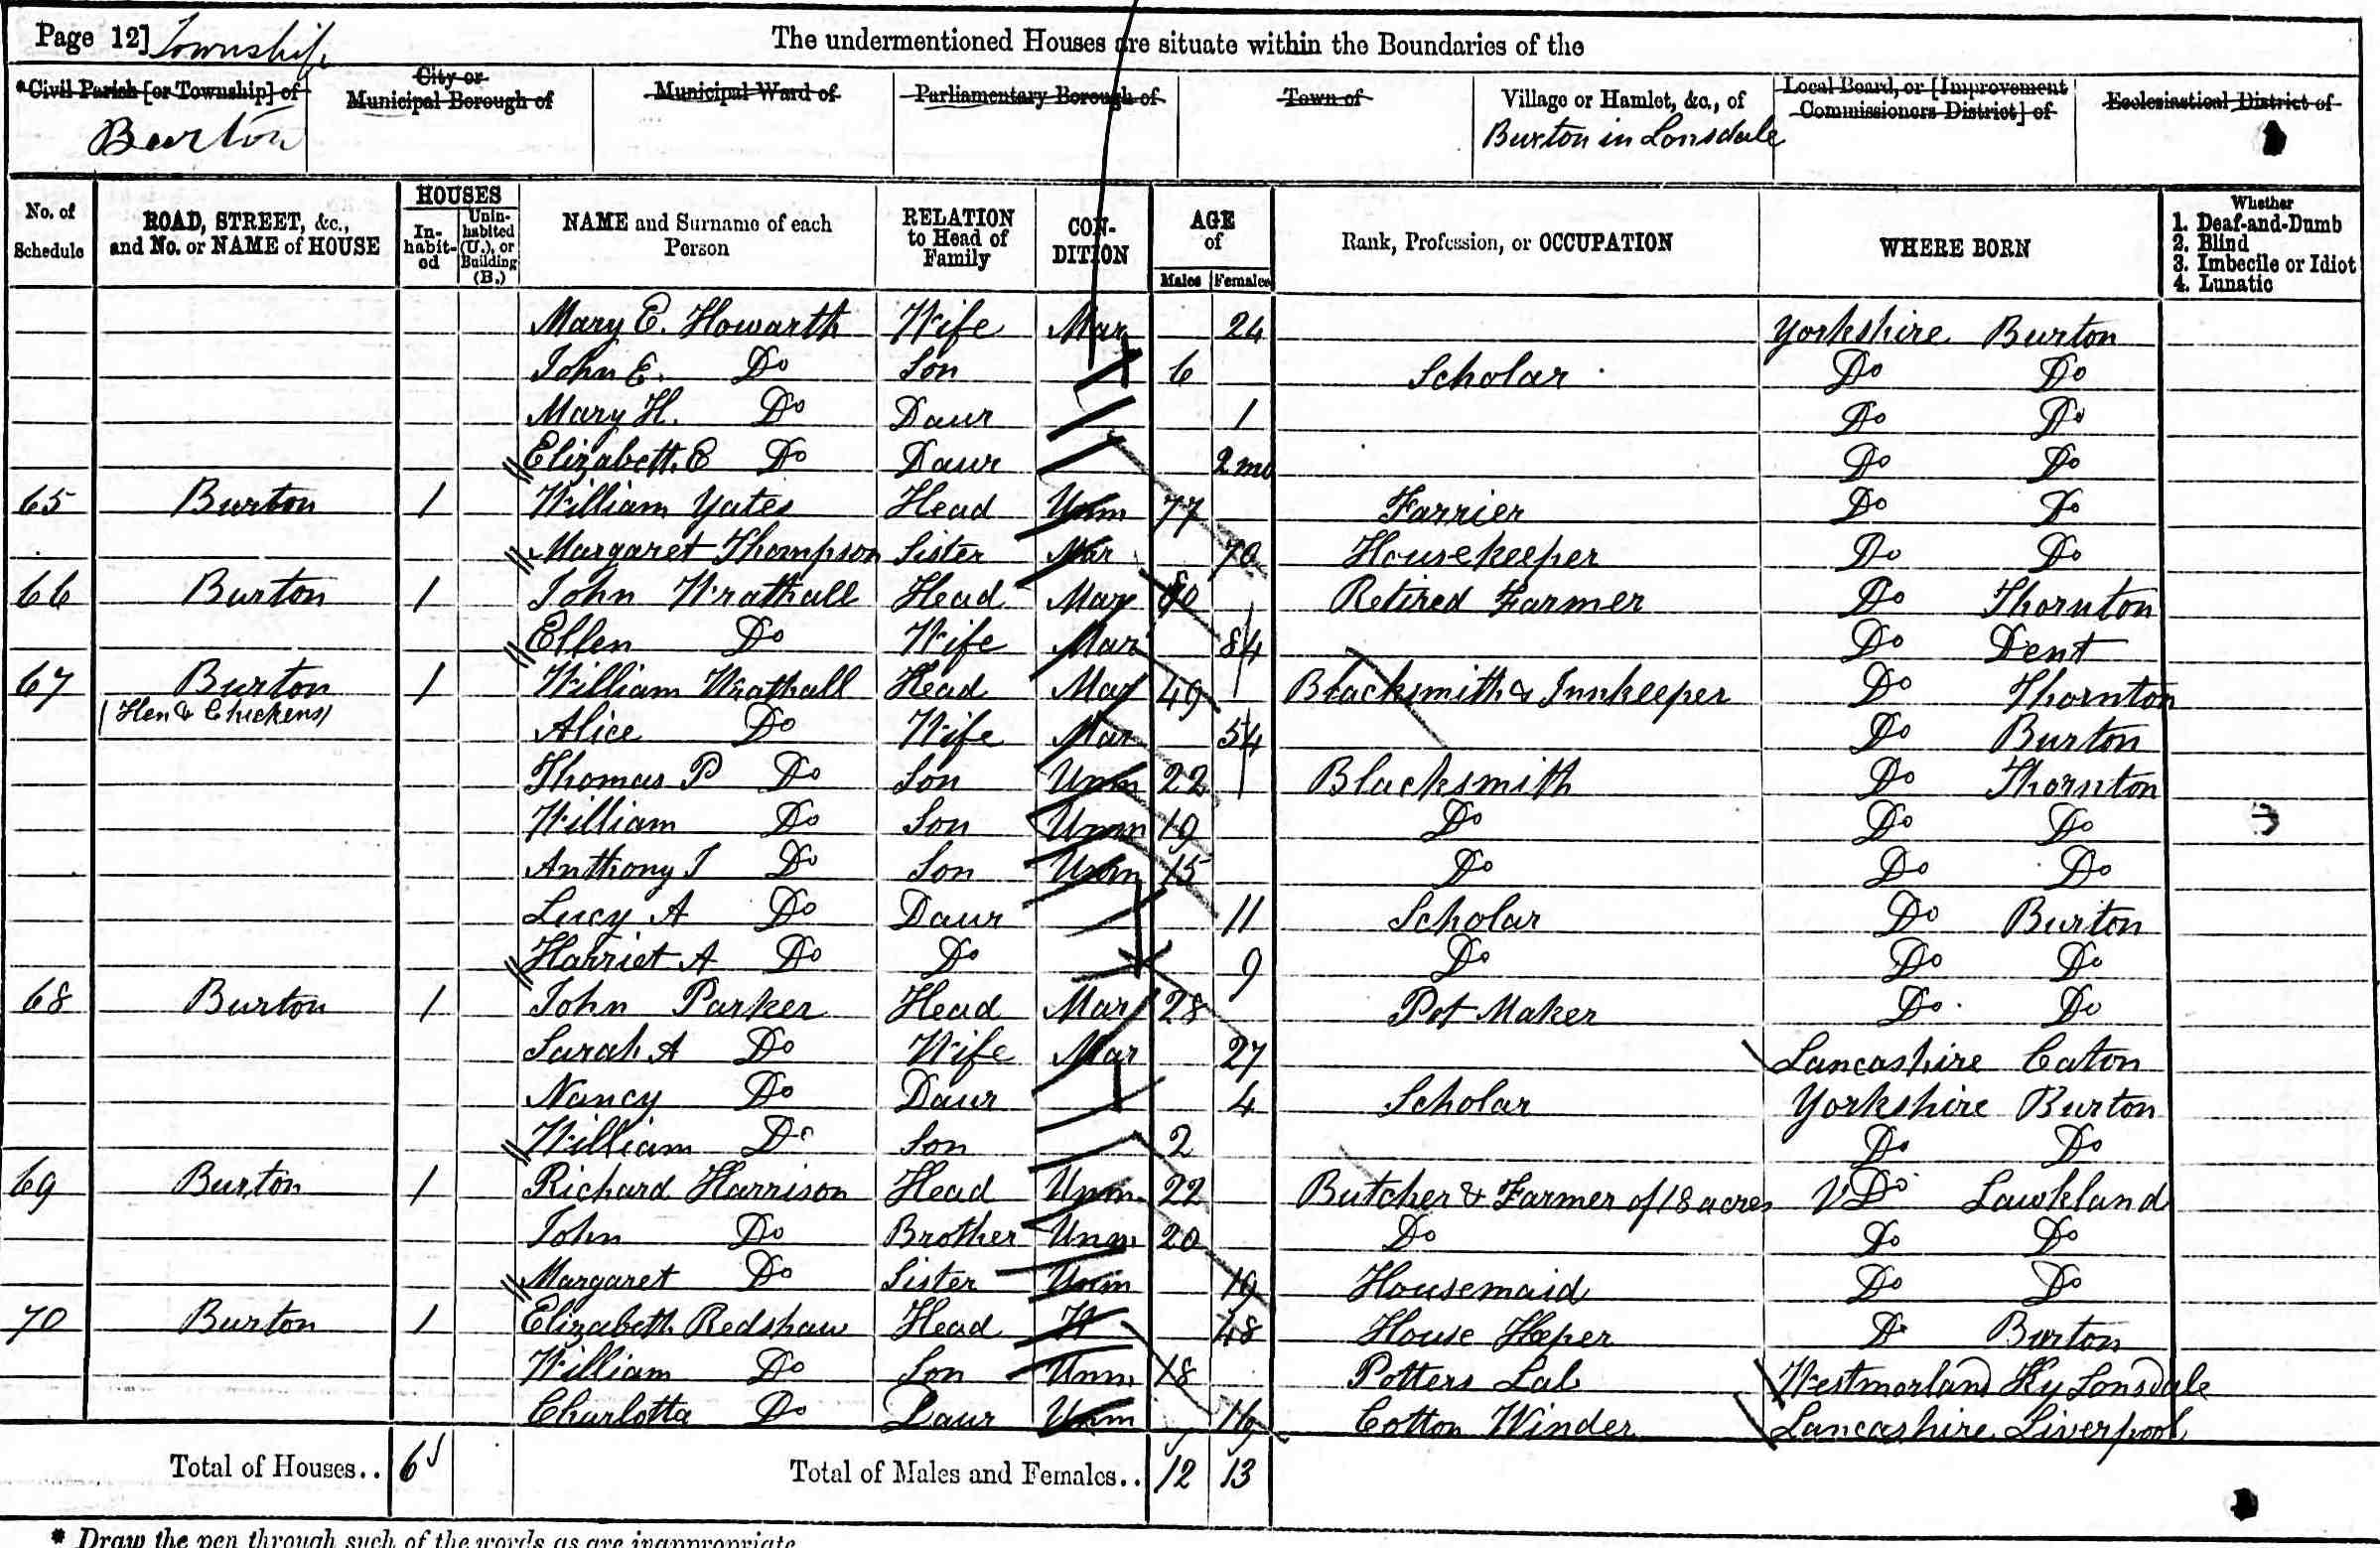 Page 12] Township
The undermentioned Houses are situate within the Boundaries of the
*Civil Parish [or Township] of
Burton
City or
Municipal Borough of
Municipal Ward of
Parliamentary Borough of
Town of
Village or Hamlet, &c., of
Burton in Lonsdale
Local Board, or [Improvement
Commissioners District] of
Ecclesiastical District of
No. of
Schedule
ROAD, STREET, &c.,
and No. or NAME of HOUSE
HOUSES
In-
habit-
ed
Unin-
habited
(U.), or
Building
(B.)
NAME and Surname of each
Person
RELATION
to Head of
Family
CON-
DITION
AGE
of
Males Females
Rank, Profession, or OCCUPATION
WHERE BORN
Whether
1. Deaf-and-Dumb
2. Blind
3. Imbecile or Idiot
4. Lunatic
Mary E. Howarth Wife Mar 24 Yorkshire Burton
John E. Do Son 6 Scholar Do Do
Mary H. Do Daur 1 Do Do
Elizabeth E Do Daur 2 mo Do Do
65 Burton 1 William Yates Head Unm 77 Farrier Do Do
Margaret Thompson Sister Mar 70 Housekeeper Do Do
66 Burton 1 John Wrathall Head Mar 80 Retired Farmer Do Thornton
Ellen Do Wife Mar 84 Do Dent
67 Burton 1 William Wrathall Head Mar 49 Blacksmith & Innkeeper Do Thornton
(Hen & Chickens) Alice Do Wife Mar 54 Do Burton
Thomas P Do Son Unm 22 Blacksmith Do Thornton
William Do Son Unm 19 Do Do Do
Anthony T Do Son Unm 15 Do Do Do
Lucy A Do Daur 11 Scholar Do Burton
Harriet A Do Do 9 Do Do Do
68 Burton 1 John Parker Head Mar 28 Pot Maker Do Do
Sarah A Do Wife Mar 27 Lancashire Caton
Nancy Do Daur 4 Scholar Yorkshire Burton
William Do Son 2 Do Do
69 Burton 1 Richard Harrison Head Unm 22 Butcher & Farmer of 18 acres Do Lawkland
John Do Brother Unm 20 Do Do Do
Margaret Do Sister Unm 19 Housemaid Do Do
70 Burton 1 Elizabeth Redshaw Head W 48 House Keeper Do Burton
William Do Son Unm 18 Potters Lab Westmorland Ky Lonsdale
Charlotta Do Daur Unm 16 Cotton Winder Lancashire Liverpool
Total of Houses.. 6 Total of Males and Females.. 12 13
* Draw the pen through such of the words as are inappropriate